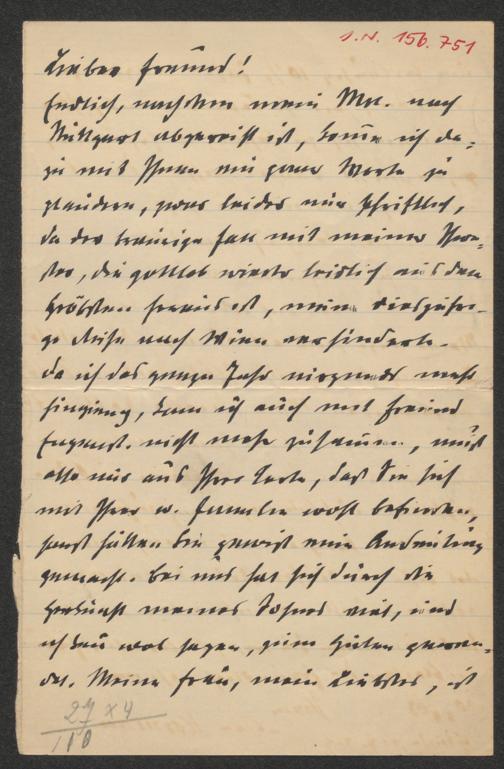 I.N. 156.751
Lieber Freund!
Endlich, nachdem mein Mu. nach
Stuttgart abgereist ist, komme ich da-
zu mit Ihnen ein paar Worte zu
plaudern, zwar leider nur schriftlich,
da der traurige Fall mit meiner Schwe-
ster, die gottlob wieder leidlich aus dem
Gröbsten heraus ist, meine diesjähri-
ge Reise nach Wien verhinderte.
Da ich das ganze Jahr nirgends mehr
hinging, kam ich auch mit Freund
nicht mehr zusammen, weiß
also nur aus Ihrer Karte, daß Sie sich
mit Ihrer w. Familie wohl befinden,
sonst hätten Sie gewiß eine Andeutung
gemacht. Bei uns hat sich durch die
Herkunft meines Sohnes viel, und
ich kann wol sagen, zum Guten gewen-
det. Meine Frau, mein Liebstes, ist
27 x 4
110